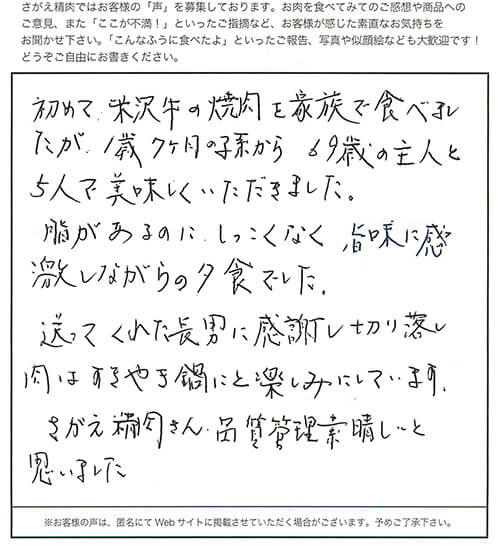 さがえ精肉ではお客様の「声」を募集しております。お肉を食べてみてのご感想や商品への
ご意見、また「ここが不満!」といったご指摘など、お客様が感じた素直なお気持ちを
お聞かせ下さい。「こんなふうに食べたよ」といったご報告、写真や似顔絵なども大歓迎です!
どうぞご自由にお書きください。
初めて、米沢牛の焼肉を家族で食べまし
たが、1歳7ヶ月の孫から 69歳の主人と
5人で美味しくいただきました。
脂があるのに、しつこくなく 旨味に感
激しながらの夕食でした。
送ってくれた長男に感謝し切り落し
肉はすきやき鍋にと楽しみにしています。
さがえ精肉さん、品質管理素晴しいと
思いました
※お客様の声は、匿名にて Web サイトに掲載させていただく場合がございます。予めご了承下さい。